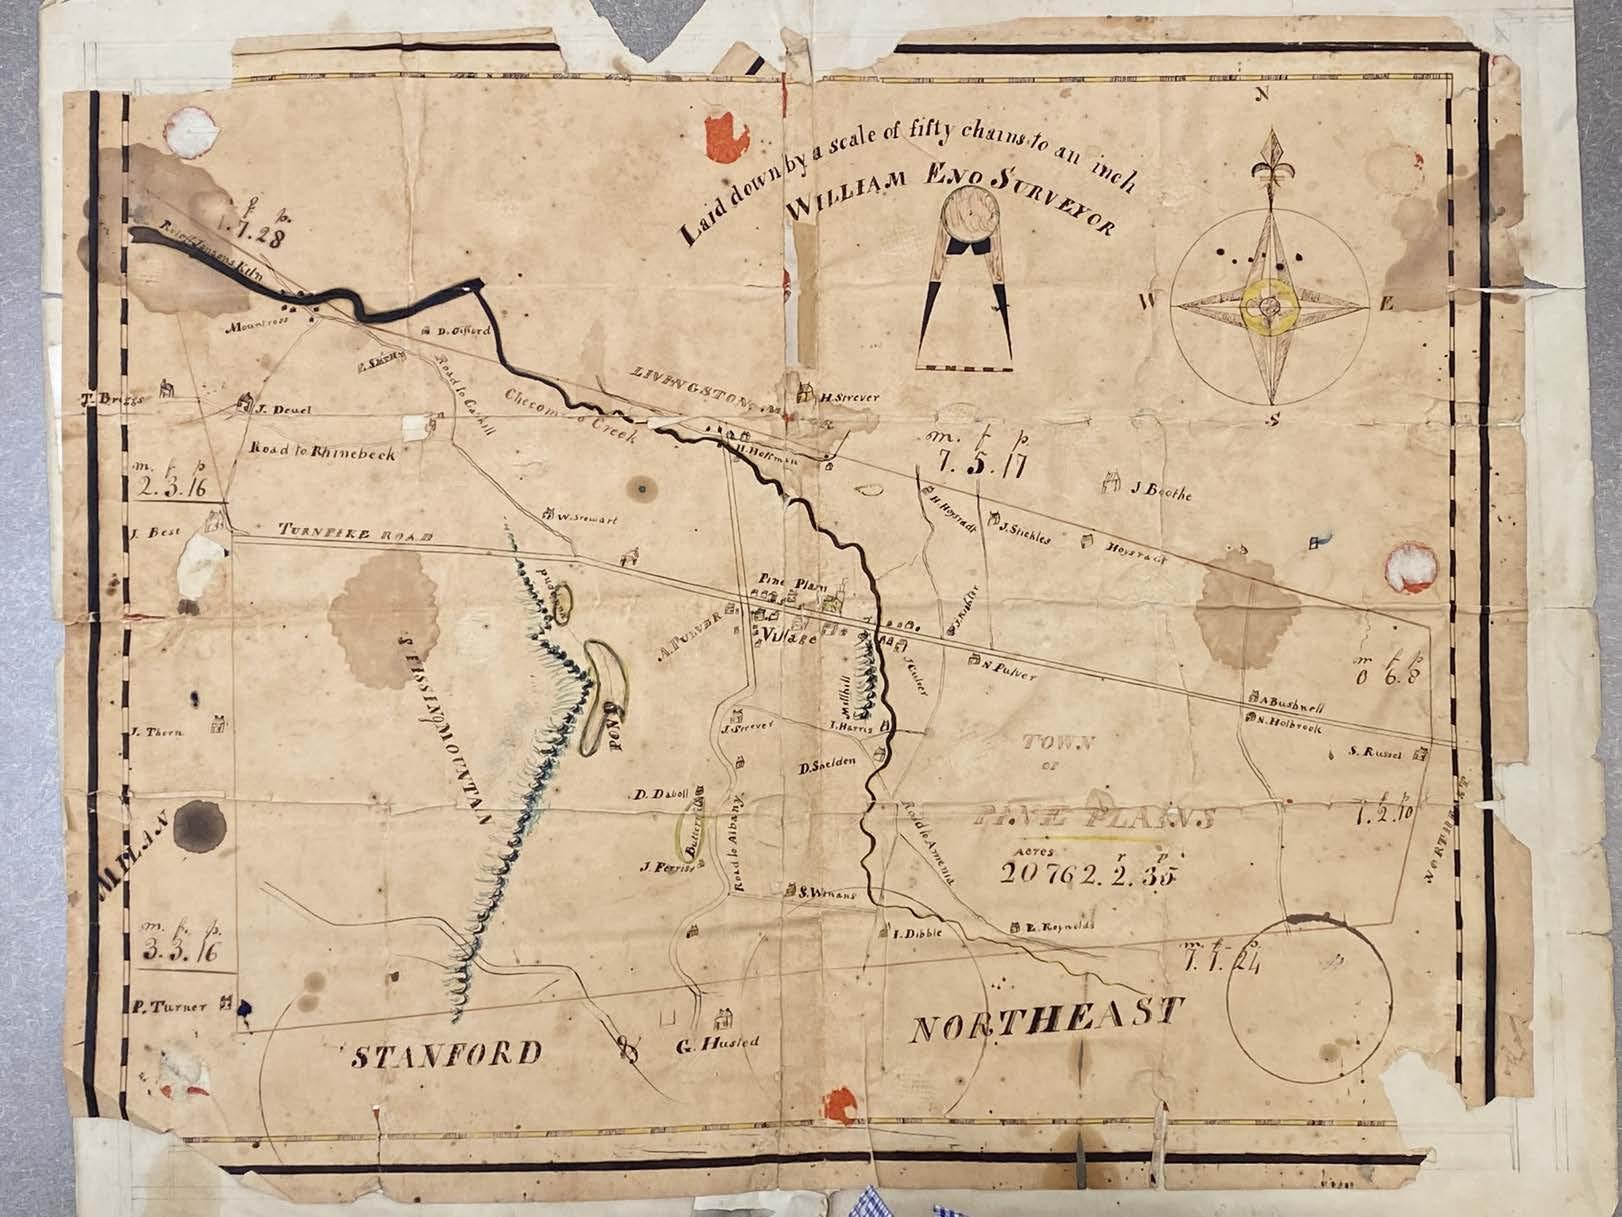 N
Laid down by a scale of fifty chains to an inch
WILLIAM ENO SURVEYOR
f. p.
1.7.28
Kiln
W
E
S
Mountross
D. Gifford
Road to Gaskill
LIVINGSTON
H. Strever
T. Briggs
J. Deuel
Creek
Road to Rhinebeck
H. Hoffman
m. f p.
7. 5. 17
m. f p
2. 3. 16
J Boothe
H. Hoysradt
J. Stickles
Hoysradt
W. Stewart
J. Best
TURNPIKE ROAD
Pine Plain
Village
A. PULVER
N. Pulver
m f p
0 6. 8
STISSING MOUNTAIN
POND
Millhill
A Bushnell
N. Holbrook
S. Russel
J. Strever
I. Harris
D. Sheldon
I. Thorn
TOWN
OF
PINE PLAINS
Acres r p
20762. 2. 35
f p
1. 2. 10
D. Daboll
J. Ferriss
Road to Albany
Road to Amenia
MILAN
S. Winans
I. Dibble
E. Reynolds
m. f. p.
3. 3. 16
m f p.
7. 7. 24
P. Turner
STANFORD
G. Husted
NORTHEAST